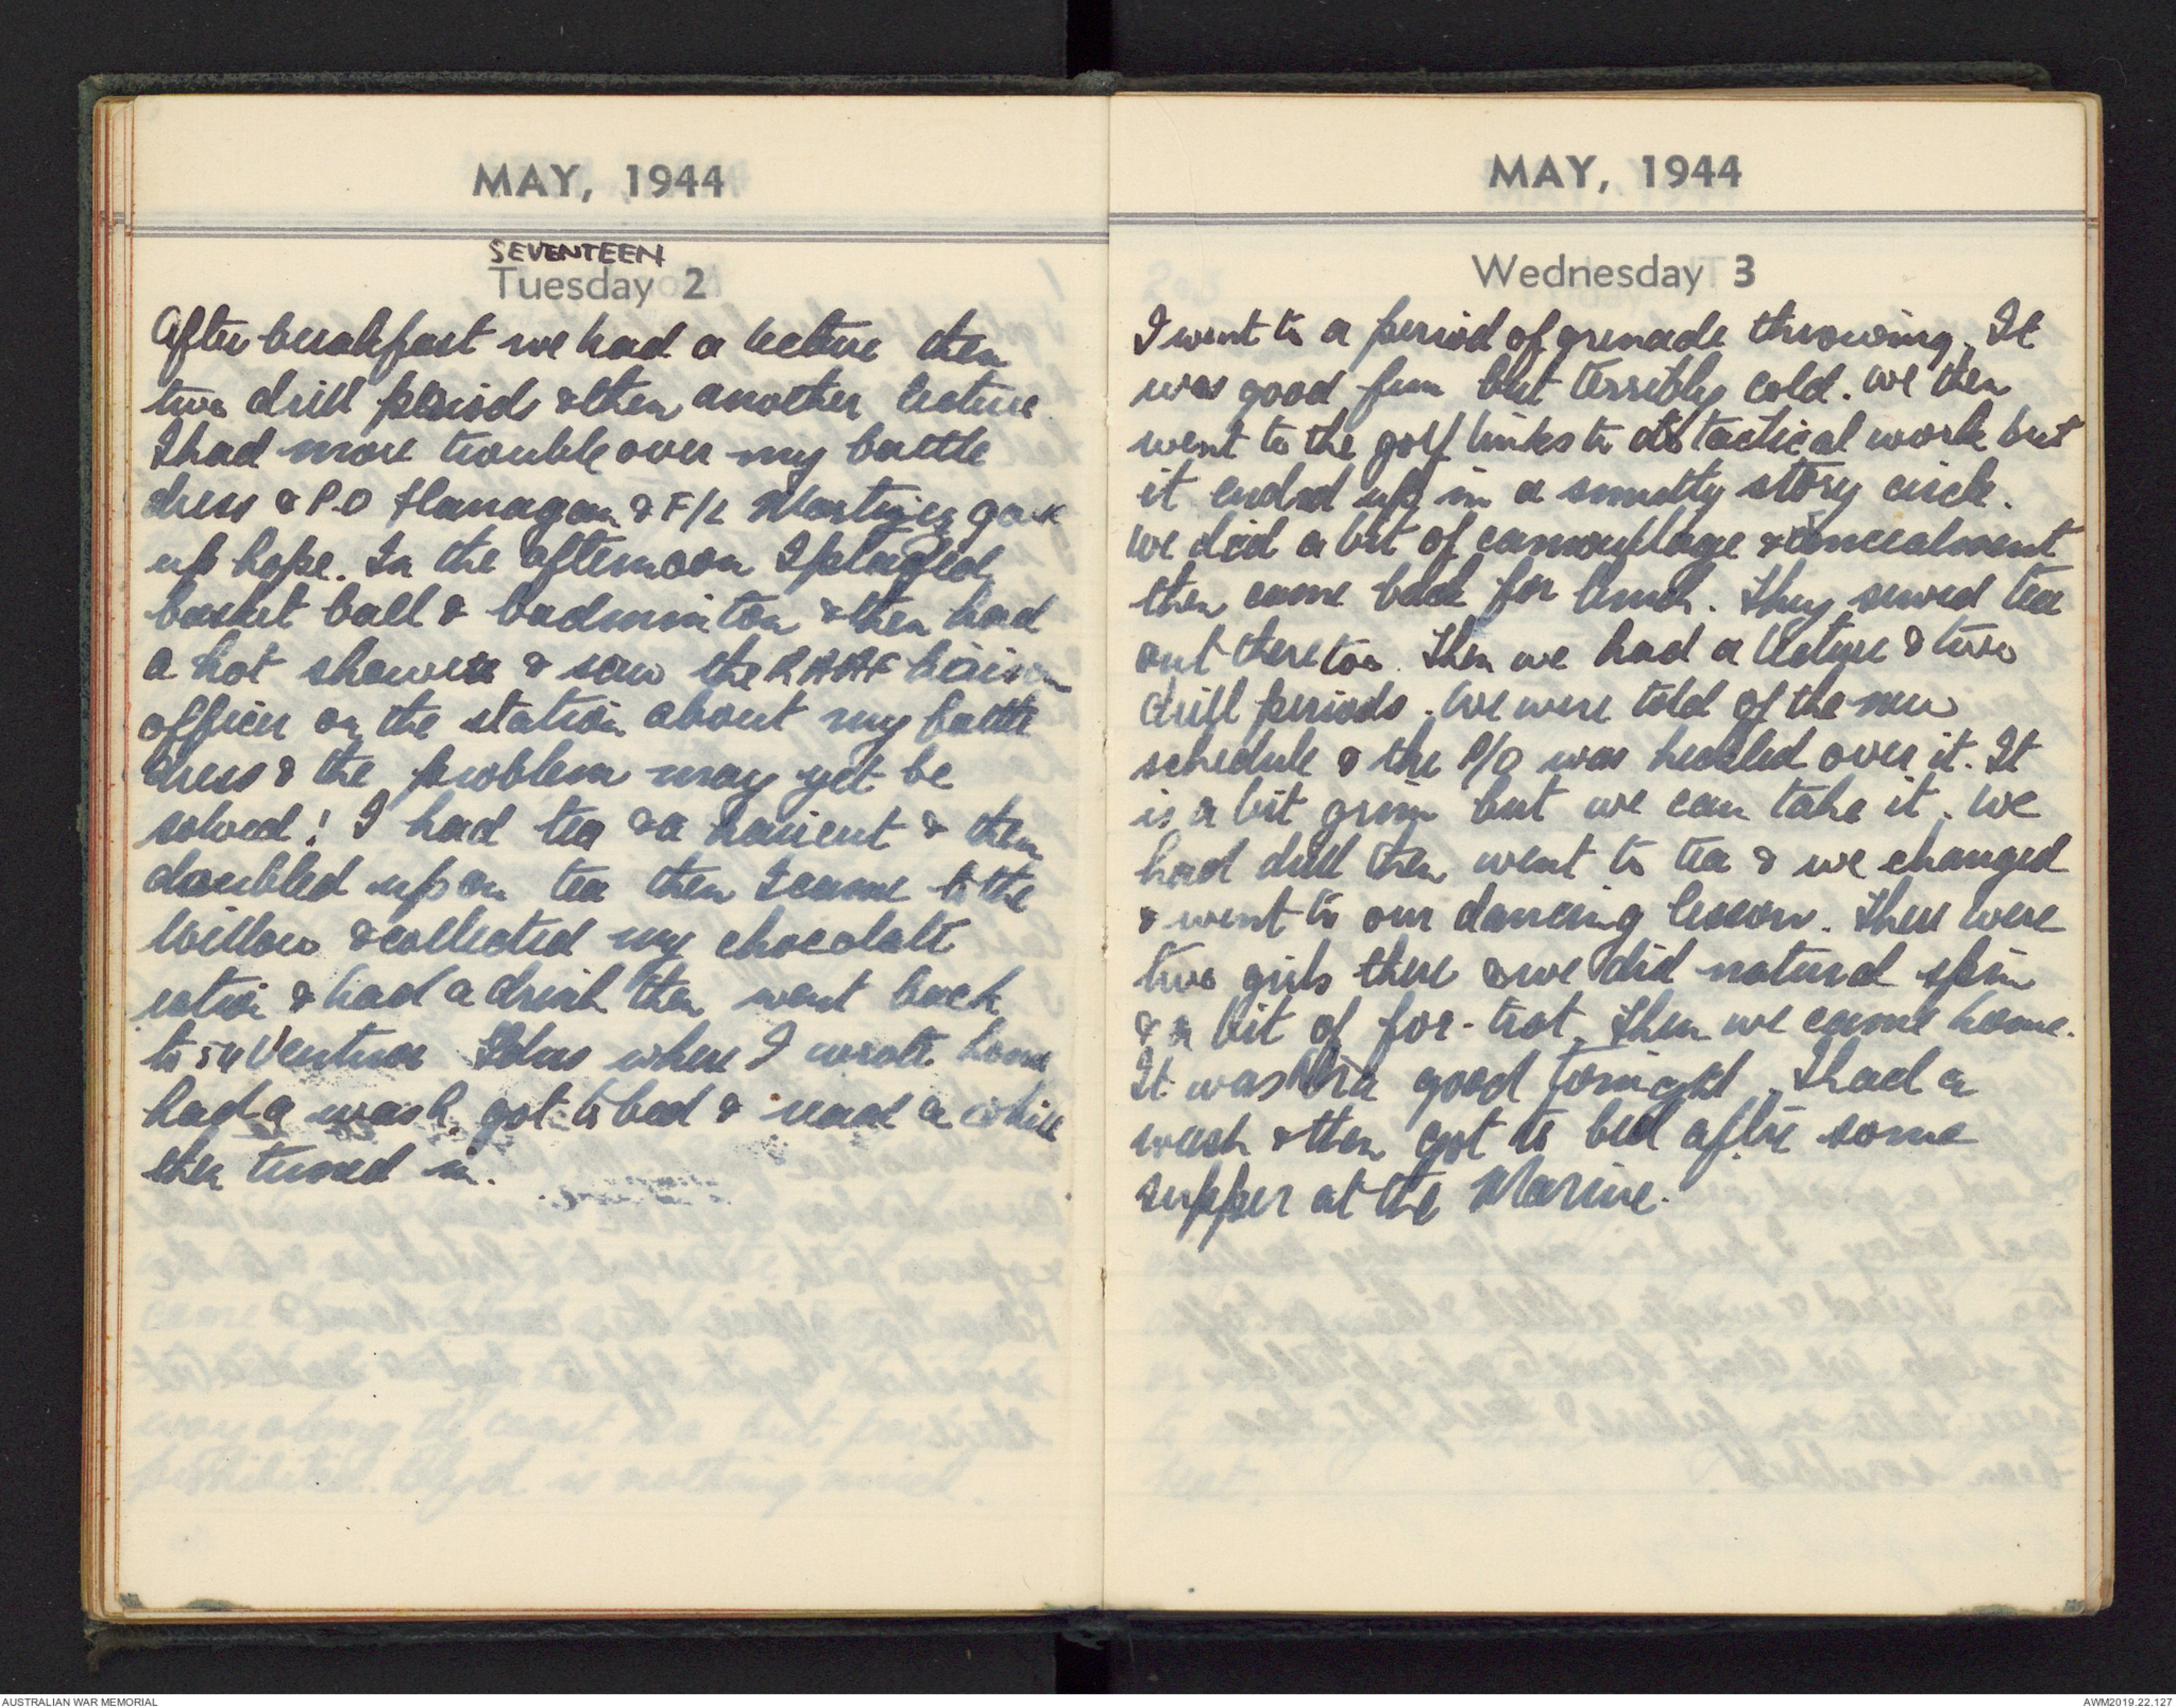 MAY, 1944
SEVENTEEN
Tuesday 2
After breakfast we had a lecture then
two drill periods & then another lecture.
I had more trouble over my battle
dress & P.O Flanagan & F/L Martin gave
up hope. In the afternoon I played
basket ball & badminton & then had
a hot shower & saw the RAAF liaison
officer on the station about my battle
dress & the problem may yet be
solved! I had tea & a haircut & then
doubled up on tea then I came to the
Willow & collected my chocolate
ration & had a drink then went back
to Ventnor where I wrote home
had a wash got to bed & read a while
then turned in.
MAY, 1944
Wednesday 3
I went to a period of grenade throwing. It
was good fun but terribly cold. We then
went to the golf links to do tactical work but
it ended up in a smutty story circle.
We did a bit of camouflage & concealment
then came back for lunch. They served tea
out there too. Then we had a lecture & two
drill periods. We were told of the new
schedule & the P/O was heckled over it. It
is a bit grim but we can take it. We
had drill then went to tea & we changed
& went to our dancing lesson. There were
two girls there & we did natural spin
& a bit of fox-trot. Then we came home.
It was good tonight. I had a
wash & then got to bed after some
supper at the Marine.
AUSTRALIAN WAR MEMORIAL
AWM2019.22.127